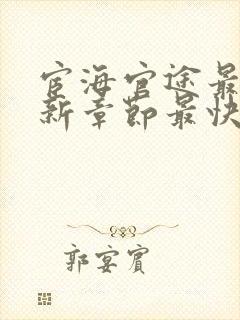 宦海官途最
新章节最快
郭宴宾